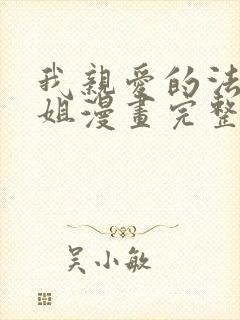 我親愛的法
姐漫畫完整
吳小敏